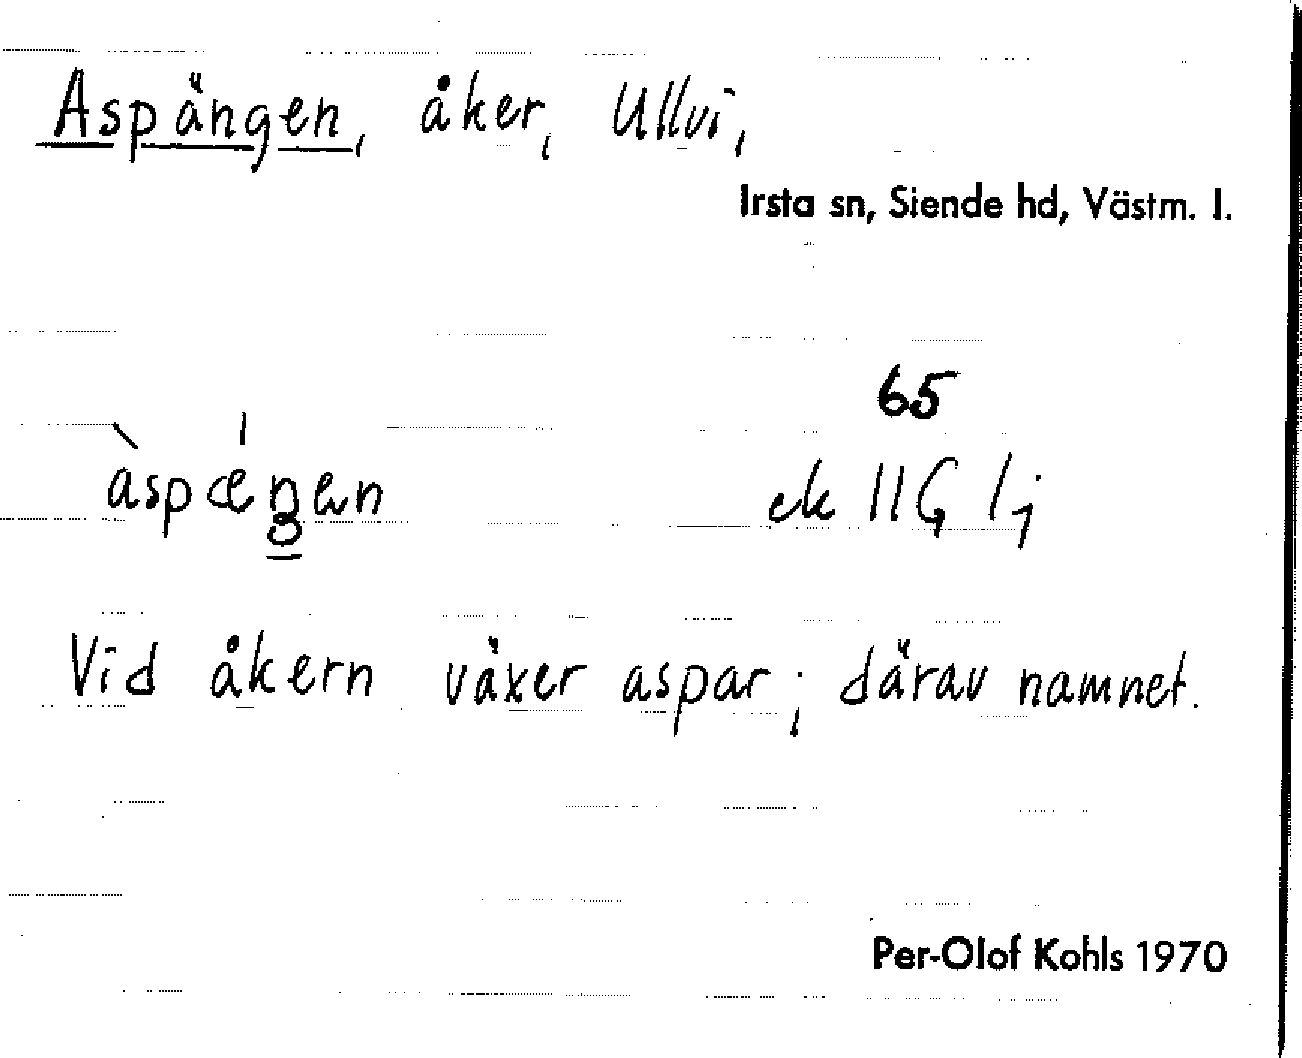 Aspängen, åker, Ullvi,
Irsta sn, Siende hd, Västm. l.
65
àspǽŋen ek 11G 1j
Vid åkern växer aspar; därav namnet.
Per-Olof Kohls 1970